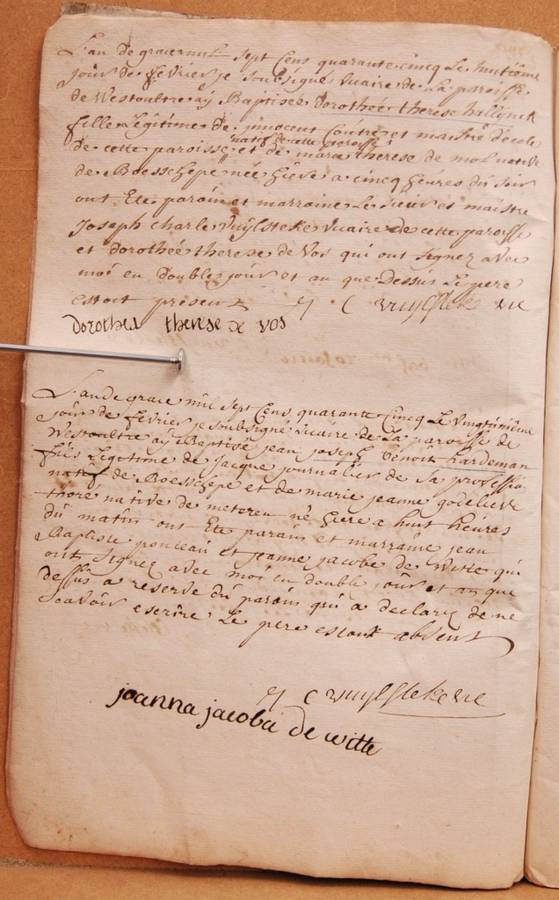 L'an de grace mil sept Cens quarante cinq Le huitième
jour de fevrier je soubsigné vicaire de La paroisse
de Westoultre aÿ Baptisée dorotheé therese
fille Legitime de jnnocent Coutre et maistre d'école
natif de cette paroisse
de cette paroisse et de marie therese de mol native
de Boesschepe née hiere a cinq heures du soir
ont Eté parain et marraine Le sieur et maistre
Joseph Charle Vuylsteke vicaire de cette paroisse
et dorotheé therese de Vos qui ont signez avec
moi en double jour et an que Dessus Le pere
estout présent J C vuylsteke vic
dorothea therese de vos
L'an de grace mil sept Cens quarante Cinq Le vingtunième
jour de fevrier je soubsigné vicaire de La paroisse de
Westoultre aÿ Baptisé jean joseph benoit hardeman
fils Legitime de jacque journalier de sa professio
natif de Boesschepe et de marie jeanne godelieve
thoré native de meteren né hiere a huit heures
du matin ont Eté parain et marraine jean
Baptiste ponceau et jeanne jacobe de Witte qui
ont signez avec moi en double jour et an que
dessus a reserve du parain qui a declarez de ne
sçavoir escrire Le pere estout absent
J C vuylsteke vic
joanna jacoba de witte